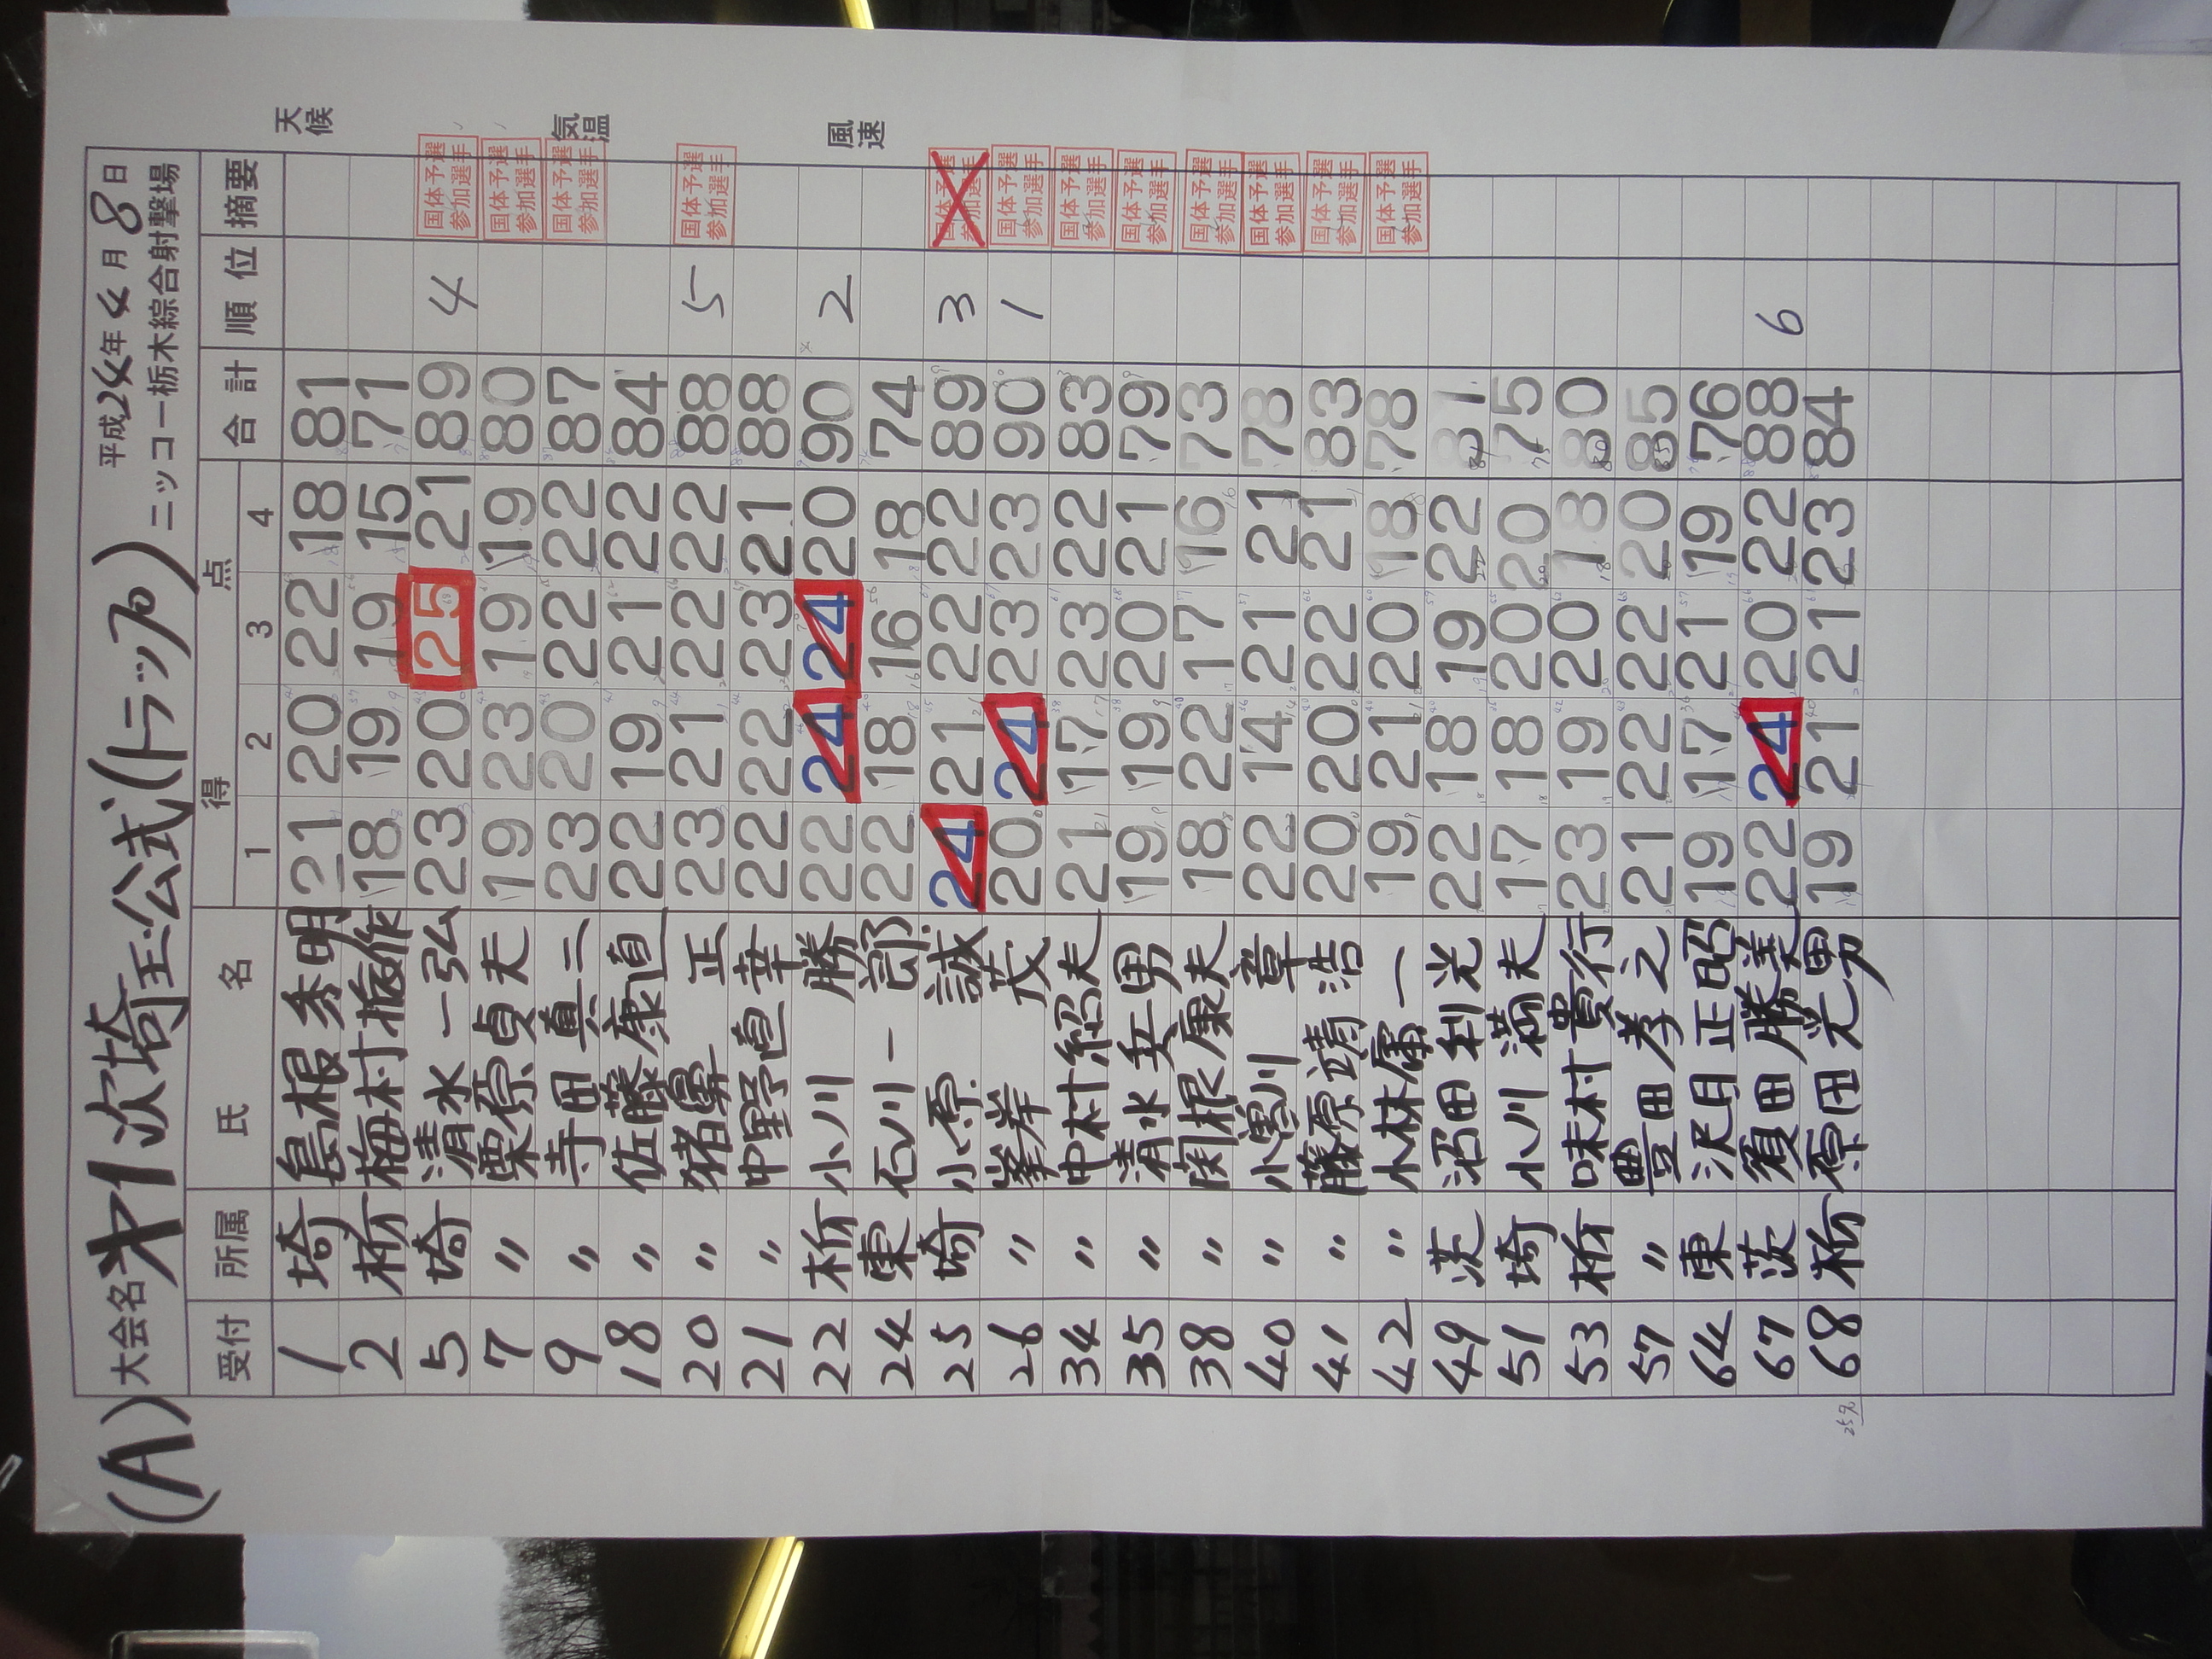 (A) 大会名 第1次埼玉公式(トラップ) 平成24年4月8日
ニッコー栃木綜合射撃場
受付 所属 氏名 得点 1 2 3 4 合計 順位 摘要
天候
気温
風速
1 埼 島根秀明 21 20 22 18 81
2 栃 梅村 18 19 19 15 71
5 埼 清水一弘 23 20 25 21 89 4 国体予選参加選手
7 〃 栗原貞夫 19 23 19 19 80 国体予選参加選手
9 〃 寺田真二 23 20 22 22 87 国体予選参加選手
18 〃 佐藤康直 22 19 21 22 84
20 〃 猪鼻正 23 21 22 22 88 5 国体予選参加選手
21 〃 中野直幸 22 22 23 21 88
22 栃 小川勝 22 24 24 20 90 2
24 東 石川一郎 22 18 16 18 74
25 埼 小原誠 24 21 22 22 89 3 国体予選参加選手
26 〃 峯岸茂 20 24 23 23 90 1 国体予選参加選手
34 〃 中村紹夫 21 17 23 22 83 国体予選参加選手
35 〃 清水兵男 19 19 20 21 79 国体予選参加選手
38 〃 関根康夫 18 22 17 16 73 国体予選参加選手
40 〃 小寒川章 22 14 21 21 78 国体予選参加選手
41 〃 藤原靖浩 20 20 22 21 83 国体予選参加選手
42 〃 小林庸一 19 21 20 18 78 国体予選参加選手
49 茨 沼田利光 22 18 19 22 81
51 埼 小川満夫 17 18 20 20 75
53 栃 味村貴行 23 19 20 18 80
57 〃 豊田孝之 21 22 22 20 85
64 東 沢月正昭 19 17 21 19 76
67 茨 須田勝美 22 24 20 22 88 6
68 栃 原田光男 19 21 21 23 84
25名